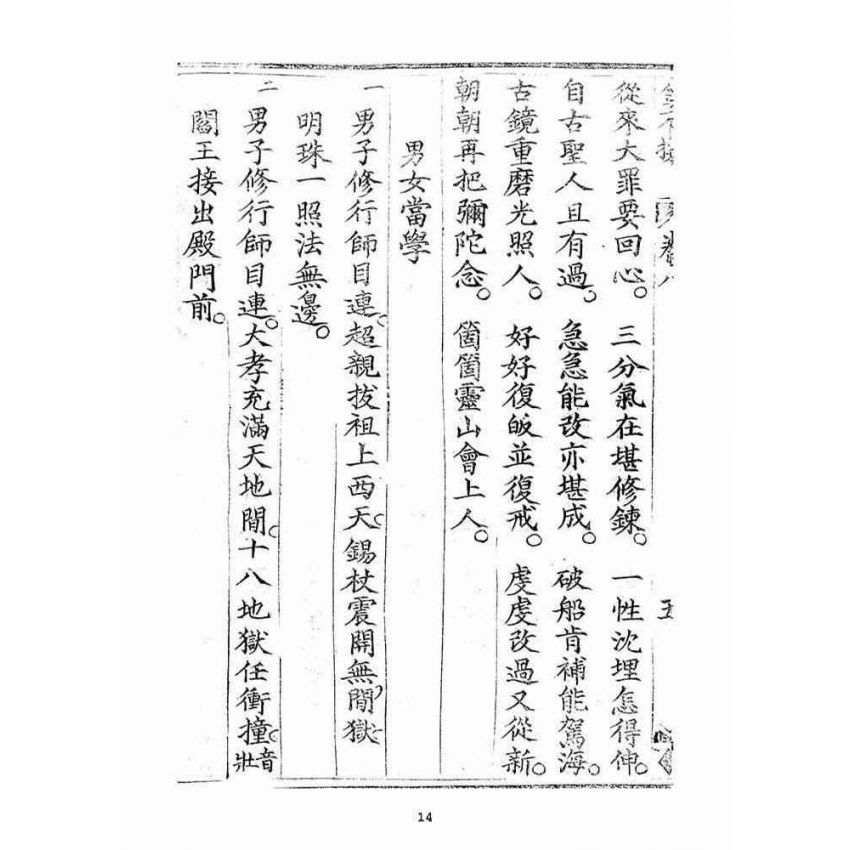 五
從來大罪要回心。三分氣在堪修鍊。一性沈埋怎得伸。
自古聖人且有過。急急能改亦堪成。破船肯補能駕海。
古鏡重磨光照人。好好復皈並復戒。虔虔改過又從新。
朝朝再把彌陀念。箇箇靈山會上人。
男女當學
一 男子修行師目連。超親拔祖上西天。錫杖震開無閒獄。
明珠一照法無邊。
二 男子修行師目連。大孝充滿天地閒。十八地獄任衝撞。音壯
閻王接出殿門前。
14